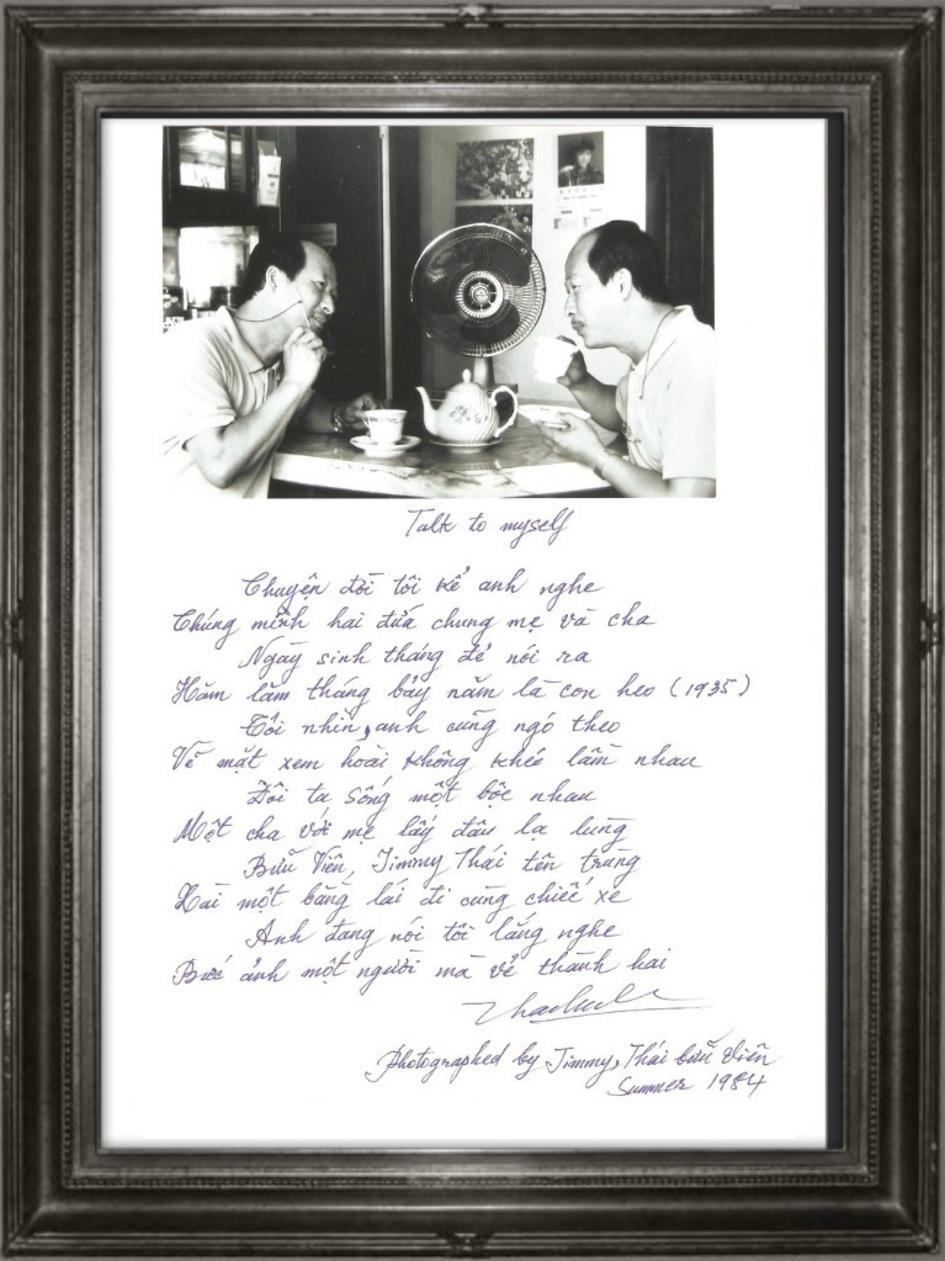 Talk to myself
Chuyện đời tôi kể anh nghe
Chúng mình hai đứa chung mẹ và cha
Ngày sinh tháng đẻ nói ra
Hăm lăm tháng bảy năm là con heo (1935)
Tôi nhìn, anh cũng ngó theo
Vẽ mặt xem hoài không khéo lầm nhau
Đôi ta sống một bọc nhau
Một cha với mẹ lấy đâu lạ lùng
Bửu Viên, Jimmy Thái tên trùng
Lái một bằng lái đi cùng chiếc xe
Anh đang nói tôi lắng nghe
Bức ảnh một người mà vẻ thành hai
Photographed by Jimmy, Thái bửu Viên
Summer 1984